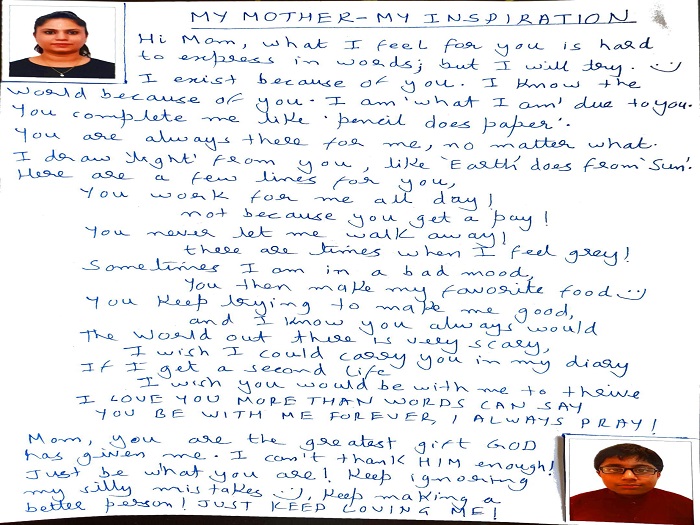 MY MOTHER - MY INSPIRATION
Hi Mom, what I feel for you is hard
to express in words; but I will try.
I exist because of you. I know the
World because of you. I am 'what I am' due to you.
You complete me like 'pencil does paper'.
You are always there for me, no matter what.
I draw 'light' from you, like 'Earth' does from 'Sun'.
Here are a few lines for you,
You work for me all day!
not because you get a pay!
You never let me walk away!
there are times when I feel grey!
Sometimes I am in a bad mood,
You then make my favorite food
You keep trying to make me good,
and I know you always would
The world out there is very scary,
I wish I could carry you in my diary
If I get a second life
I wish you would be with me to thrive
I LOVE YOU MORE THAN WORDS CAN SAY
YOU BE WITH ME FOREVER, I ALWAYS PRAY!
Mom, you are the greatest gift GOD
has given me. I can't thank HIM enough!
Just be what you are! Keep ignoring
my silly mistakes, keep making a
better person! JUST KEEP LOVING ME!